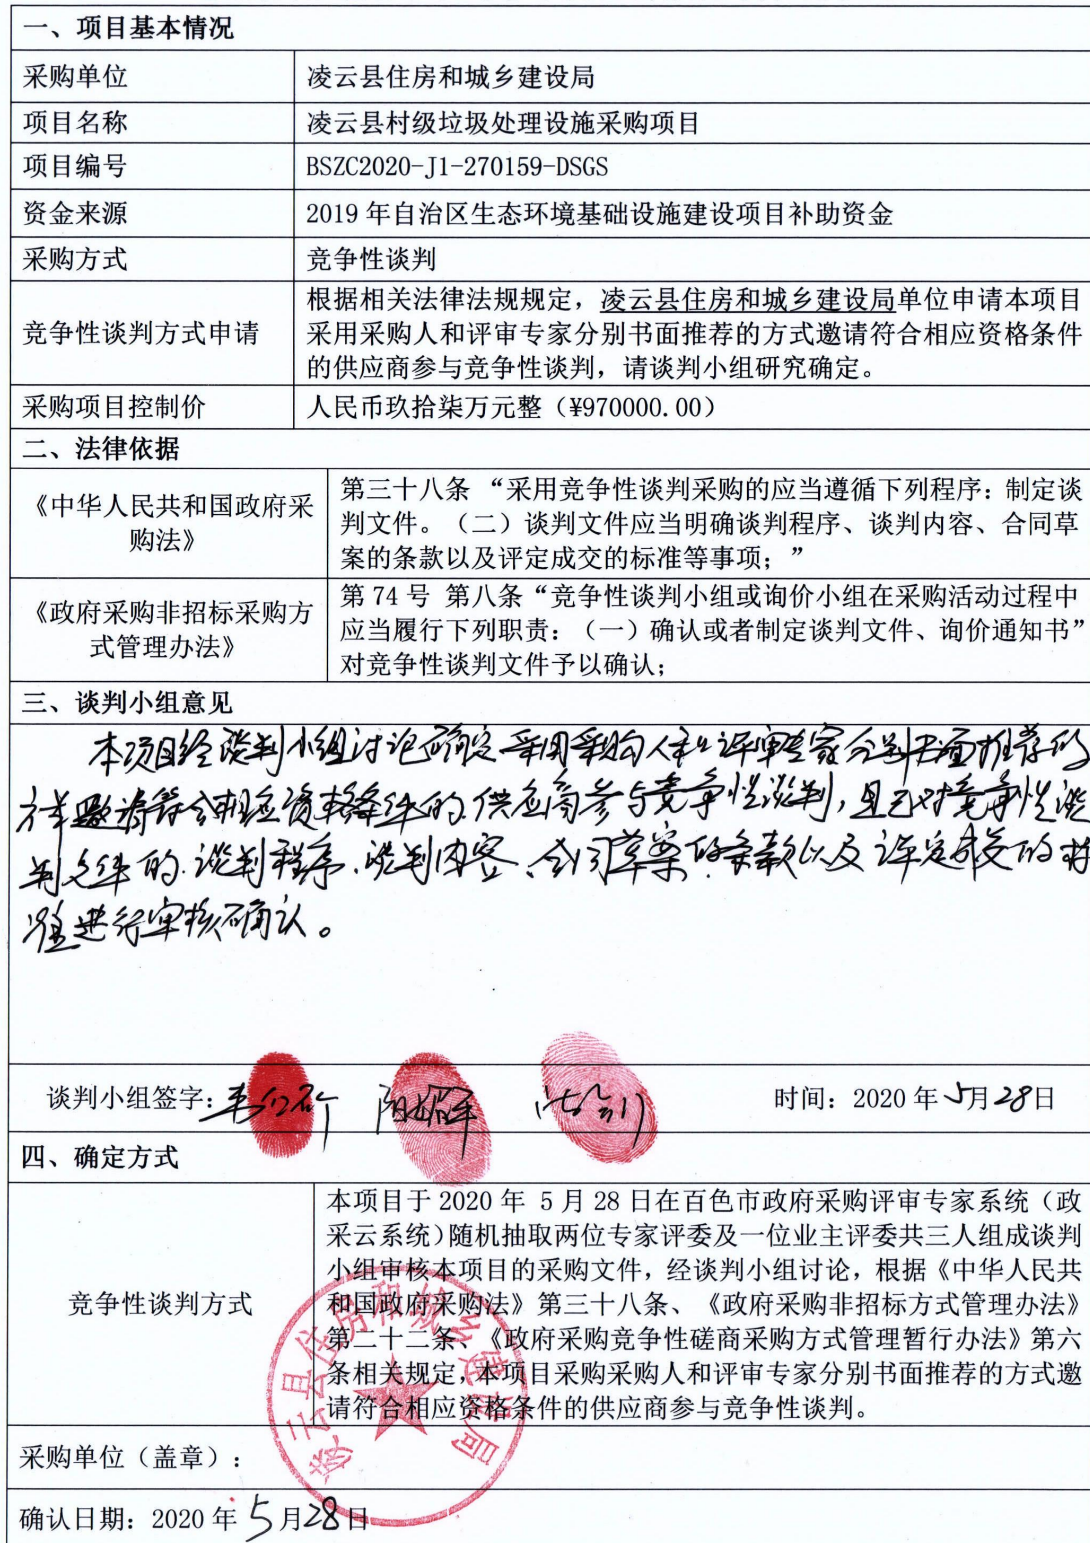 一、项目基本情况
采购单位 凌云县住房和城乡建设局
项目名称 凌云县村级垃圾处理设施采购项目
项目编号 BSZC2020-J1-270159-DSGS
资金来源 2019年自治区生态环境基础设施建设项目补助资金
采购方式 竞争性谈判
根据相关法律法规规定，凌云县住房和城乡建设局单位申请本项目
竞争性谈判方式申请 采用采购人和评审专家分别书面推荐的方式邀请符合相应资格条件
的供应商参与竞争性谈判，请谈判小组研究确定。
采购项目控制价 人民币玖拾柒万元整（¥970000.00）
二、法律依据
《中华人民共和国政府采
购法》
第三十八条 “采用竞争性谈判采购的应当遵循下列程序：制定谈
判文件。（二）谈判文件应当明确谈判程序、谈判内容、合同草
案的条款以及评定成交的标准等事项；”
《政府采购非招标采购方
式管理办法》
第74号 第八条“竞争性谈判小组或询价小组在采购活动过程中
应当履行下列职责：（一）确认或者制定谈判文件、询价通知书”
对竞争性谈判文件予以确认；
三、谈判小组意见
本项目经谈判小组讨论确定采用采购人和评审专家分别书面推荐的
方式邀请符合相应资格条件的供应商参与竞争性谈判，且已对竞争性谈
判文件的谈判程序、谈判内容、合同草案的条款以及评定成交的标
准进行审核确认。
谈判小组签字： 时间：2020年5月28日
四、确定方式
竞争性谈判方式
本项目于2020年 5月28日在百色市政府采购评审专家系统（政
采云系统）随机抽取两位专家评委及一位业主评委共三人组成谈判
小组审核本项目的采购文件，经谈判小组讨论，根据《中华人民共
和国政府采购法》第三十八条、《政府采购非招标方式管理办法》
第二十二条、《政府采购竞争性磋商采购方式管理暂行办法》第六
条相关规定，本项目采购采购人和评审专家分别书面推荐的方式邀
请符合相应资格条件的供应商参与竞争性谈判。
凌云县住房和城乡建设局
采购单位（盖章）：
确认日期：2020年5月28日